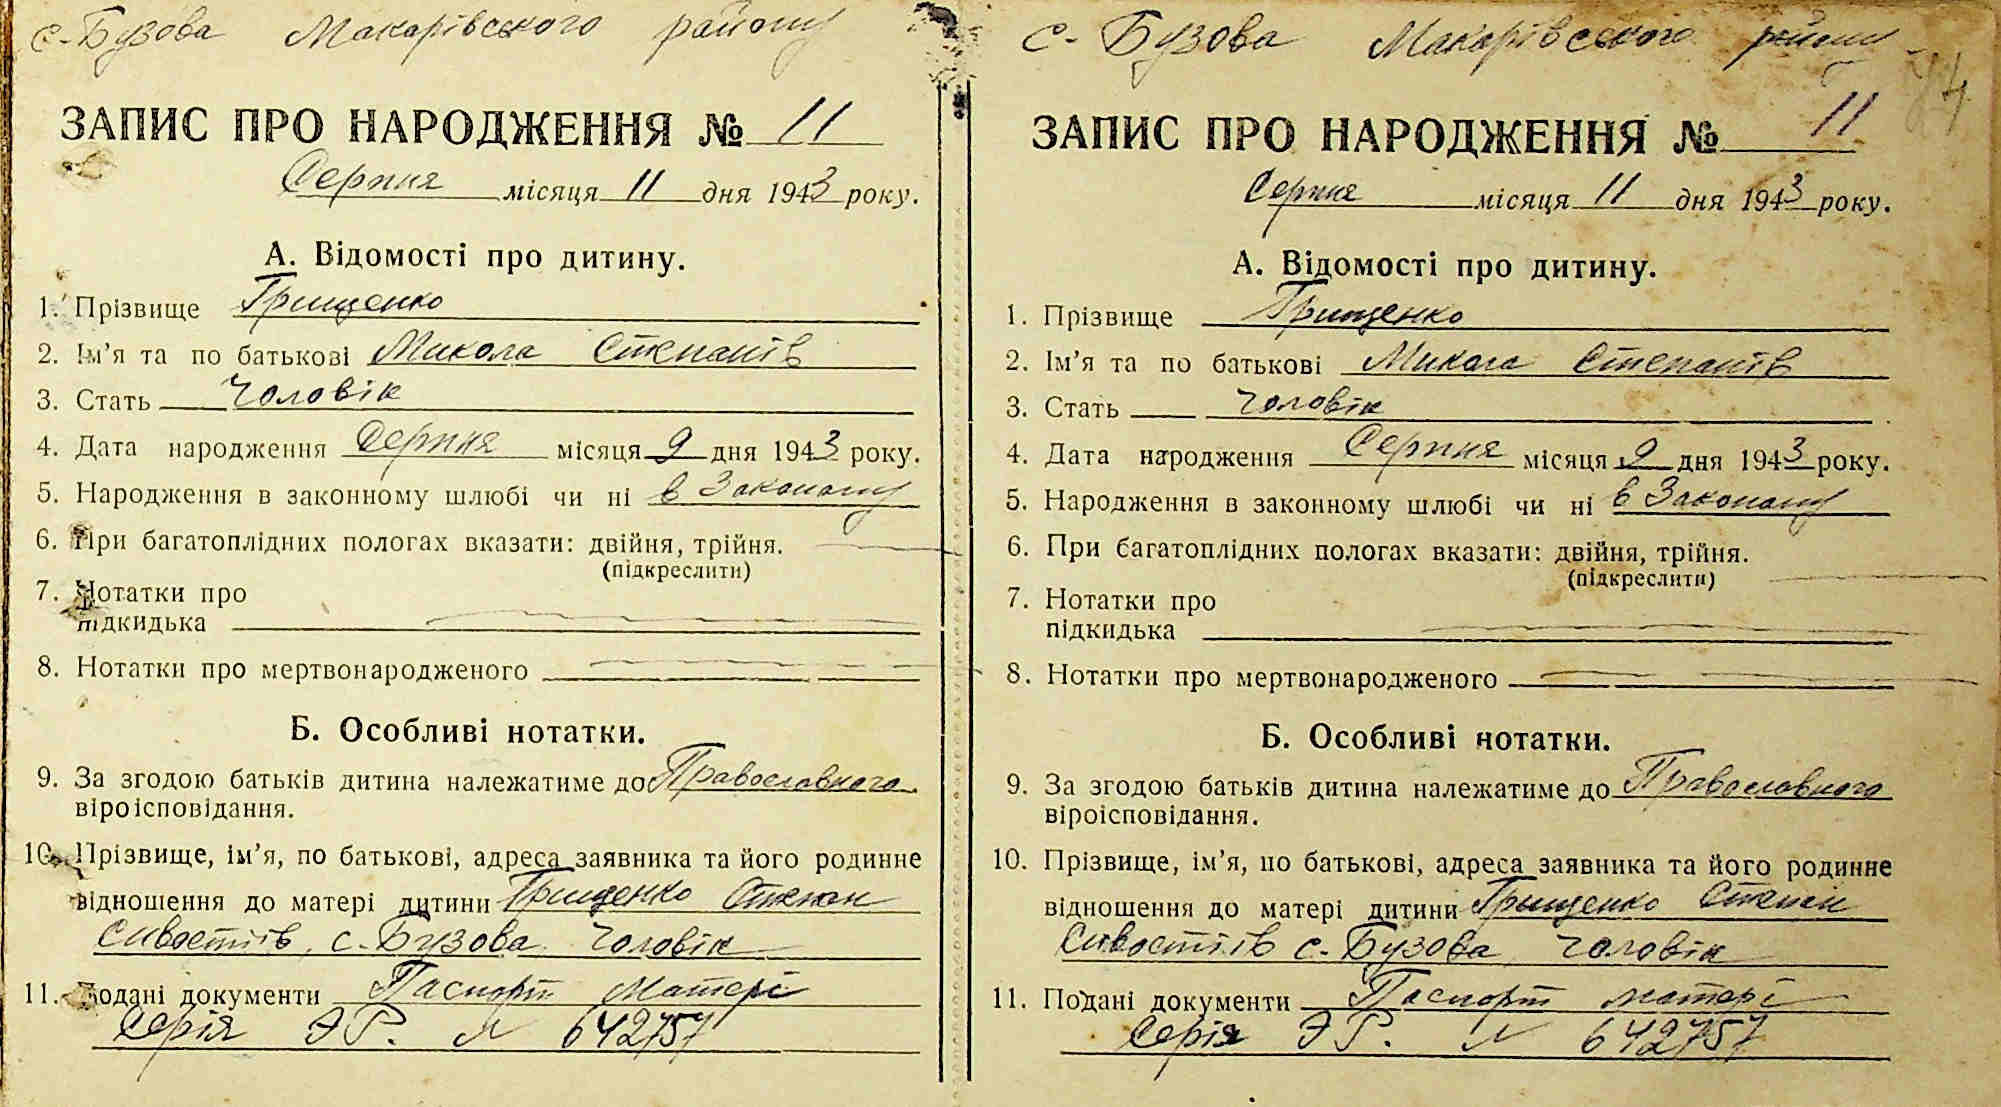 с. Бузова Макарівського району
ЗАПИС ПРО НАРОДЖЕННЯ № 11
Серпня місяця 11 дня 1943 року.
А. Відомості про дитину.
1. Прізвище Грищенко
2. Ім'я та по батькові Микола Степанів
3. Стать Чоловік
4. Дата народження Серпня місяця 9 дня 1943 року.
5. Народження в законному шлюбі чи ні в Законому
6. При багатоплідних пологах вказати: двійня, трійня.
(підкреслити)
7. Нотатки про
підкидька
8. Нотатки про мертвонародженого
Б. Особливі нотатки.
9. За згодою батьків дитина належатиме до Православного
віроісповідання.
10. Прізвище, ім'я, по батькові, адреса заявника та його родинне
відношення до матері дитини Грищенко Степан
Сивастіїв, с. Бузова Чоловік
11. Подані документи Паспорт матері
Серія ЭР. N 642757
с. Бузова Макарівського району
74
ЗАПИС ПРО НАРОДЖЕННЯ № 11
Серпня місяця 11 дня 1943 року.
А. Відомості про дитину.
1. Прізвище Грищенко
2. Ім'я та по батькові Микола Степанів
3. Стать Чоловік
4. Дата народження Серпня місяця 9 дня 1943 року.
5. Народження в законному шлюбі чи ні в Законому
6. При багатоплідних пологах вказати: двійня, трійня.
(підкреслити)
7. Нотатки про
підкидька
8. Нотатки про мертвонародженого
Б. Особливі нотатки.
9. За згодою батьків дитина належатиме до Православного
віроісповідання.
10. Прізвище, ім'я, по батькові, адреса заявника та його родинне
відношення до матері дитини Грищенко Степан
Сивастіїв с. Бузова, Чоловік
11. Подані документи Паспорт матері
Серія ЭР. N 642757